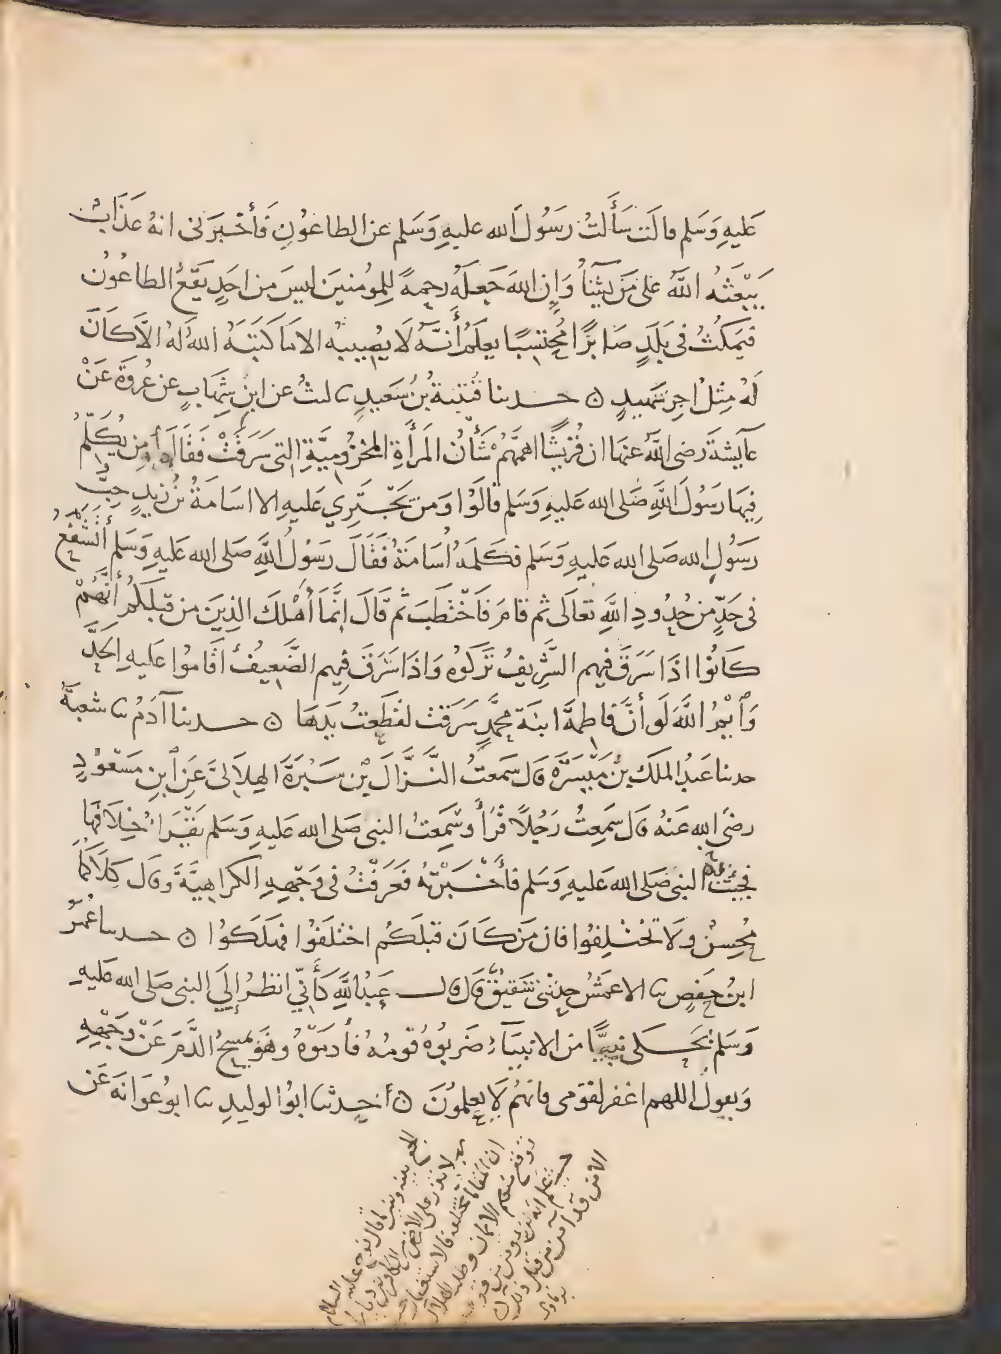 عَليهِ وَسَلم قالَت سَأَلتُ رَسُولَ الله عليهِ وَسَلم عن الطاعُونِ فَأخبَرَنى انهُ عَذَابٌ
يَبْعَثهُ اللّهُ على مَن يشاُ وَإن اللهَ جَعلهُ رحمةً لِلمومنين ليسَ مِن احَدٍ يَقَعُ الطاعُون
فيَمكثُ فى بَلَدٍ صَابرًا مُحتسبًا يعلَمُ أنَّهُ لَا يُصِيبُهُ الا ما كَتبَهُ اللهُ لهُ الَّا كَانَ
لَهُ مِثلُ اجرِ شهيدٍ ۞ حدثنا قُتيبةُ بنُ سَعيدٍ ثنا ليثٌ عن ابنِ شِهَابٍ عن عُروَةَ عَنْ
عَايشةَ رضى اللّهُ عنها ان قُرَيشًا اهمَّهُم شَأنُ المَرأَةِ المَخزُومِيَّةِ التى سَرَقَتْ فَقَالَ مِن يُكَلِّمُ
فِيهَا رَسُولَ اللَّهِ صَلى الله عَليهِ وَسَلم قالَوُا وَمَن يَجْتَرِي عَليهِ الا اسَامَةُ بُنُ زيدٍ حِبُّ
رَسُولِ الله صَلى الله عَليهِ وَسَلم فكلمَهُ اُسَامَةُ فقَالَ رَسُولُ اللَّهِ صَلى الله عَليهِ وَسَلم أتَشْفَعُ
فى حَدٍّ من حُدُودِ اللَّهِ تعالَى ثم قامَ فَاخْتَطَبَ ثم قَالَ إنَّمَا أُهْلكَ الذِينَ مِن قبلَكُم أنَّهُمْ
كَانُوا اذَا سَرَقَ فيهم الشَّرِيفُ تَرَكوُهُ وَاذَا سَرَقَ فِيهم الضَّعِيفُ اقَامُوا عَليهِ الحَدَّ
وَأيمُ اللَّهِ لَو أنَّ فَاطِمَةَ ابنَةَ مُحمَّدٍ سَرَقتْ لقطَعتُ يَدَهَا ۞ حدثنا آدَمُ ثنا شعبةُ
حدثنا عَبدُ الملكِ بنُ مَيْسَرَةَ قال سَمعتُ النَّزَّالَ بْنَ سَبْرَةَ الهِلَالىَّ عَن ابنِ مَسْعُودٍ
رضىَ الله عَنهُ قال سَمِعتُ رَجُلًا قَرَأ وسَمَعتُ النبى صَلى الله عَليهِ وَسَلم يَقْرَا خِلَافَهَا
فجئتُ به النبى صَلى الله عَليهِ وَسَلم فأخْبَرْتهُ فعَرَفْتُ فى وَجْههِ الكراهِيَّةَ وقال كِلَاكُمَا
مُحسِنٌ ولَا تَختَلِفُوا فان مَن كَانَ قبلَكُم اختلَفُوا فهلَكوُا ۞ حدثنا عُمَرُ
ابنُ حَفصٍ ثنا الاعمشُ حدثنى شقيقٌ قال قال عبدُ اللَّهِ كَأنّي انظرُ إلَي النبى صَلى الله عَليهِ
وَسَلم يَحكى نَبِيًّا مِن الانبيَآءِ ضرَبوُهُ قَومُهُ فأدمَوْهُ وهُوَ يمسَحُ الدَّمَ عَنْ وَجْههِ
وَيقولُ اللهم اغفر لقَومى فانهُم لَا يعلموُنَ ۞ أ حدثنا ابوُا الوليدِ ثنا ابوُ عَوانةَ عَن